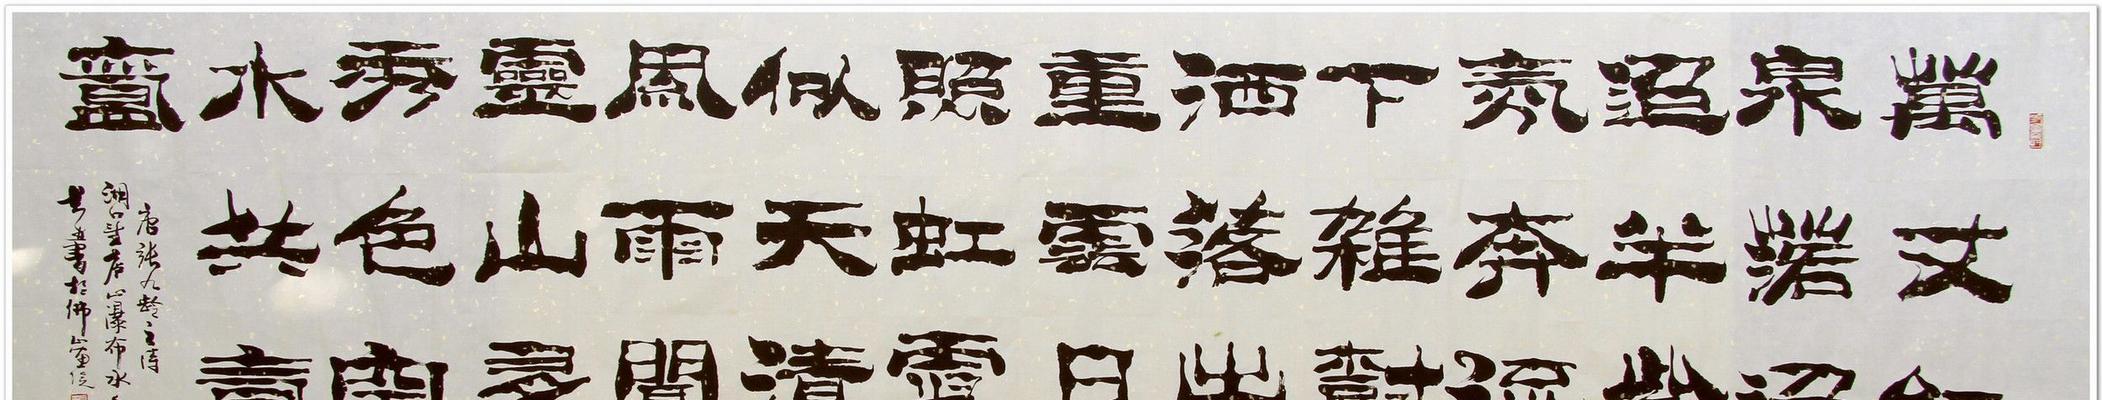 萬丈紅
泉落迢
迢半紫
氛奔流
下雜樹
洒落出
重雲日
照虹霓
似天清
風雨聞
靈山多
秀色空
水共
唐張九齡之詩
湖口望廬山瀑布水
書於佛山